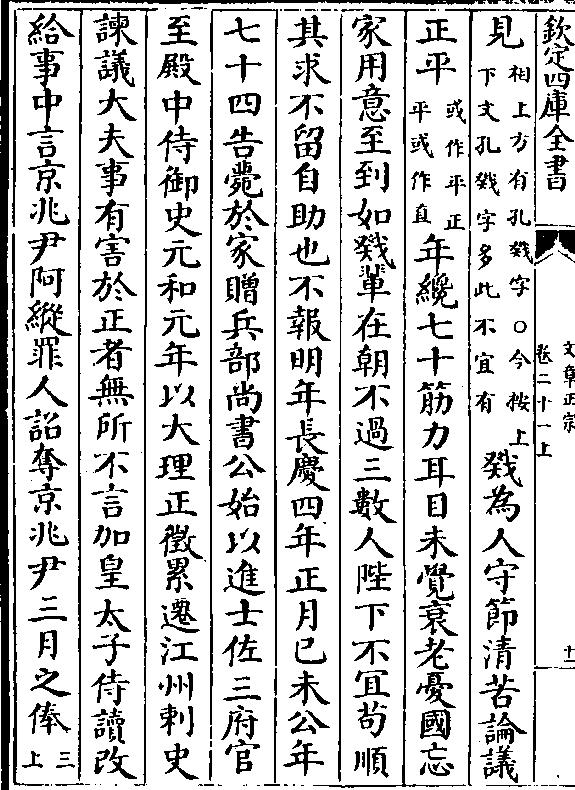 欽定四庫全書
文章正宗
卷二十一上
十一
見相上方有孔戣字○今按上下文孔戣字多此不宜有戣為人守節清苦論議
正平或作平正平或作直年纔七十筋力耳目未覺衰老憂國忘
家用意至到如戣輩在朝不過三數人陛下不宜苟順
其求不留自助也不報明年長慶四年正月已未公年
七十四告薨於家贈兵部尚書公始以進士佐三府官
至殿中侍御史元和元年以大理正徵累遷江州刺史
諫議大夫事有害於正者無所不言加皇太子侍讀改
給事中言京兆尹阿縱罪人詔奪京兆尹三月之俸三上